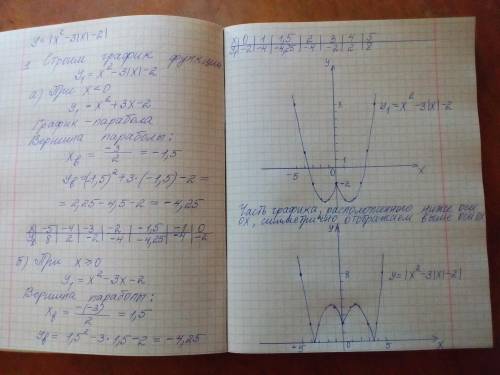 y=|x²-3|x|-2|
1. Строим график функции
y₁=x²-3|x|-2
а) При x<0
y₁=x²+3x-2
График - парабола
Вершина параболы:
xв=-3/2=-1,5
yв=(1,5)²+3·(-1,5)-2=
=2,25-4,5-2=-4,25
x|-5|-4|-3|-2|-1,5|-1|0
y|8|2|-2|-4|-4,25|-4|-2
б) При x≥0
y₁=x²-3x-2
Вершина параболы:
xв=-(-3)/2=1,5
yв=1,5²-3·1,5-2=-4,25
x|0|1|1,5|2|3|4|5
y|-2|-4|-4,25|-4|-2|2|8
y
8
y₁=x²-3|x|-2
1
-5 0 x
-2
Часть графика, расположенного ниже оси
OX, симметрично отображаем выше оси OX
y
8
y=|x²-3|x|-2|
-5 0 5 x